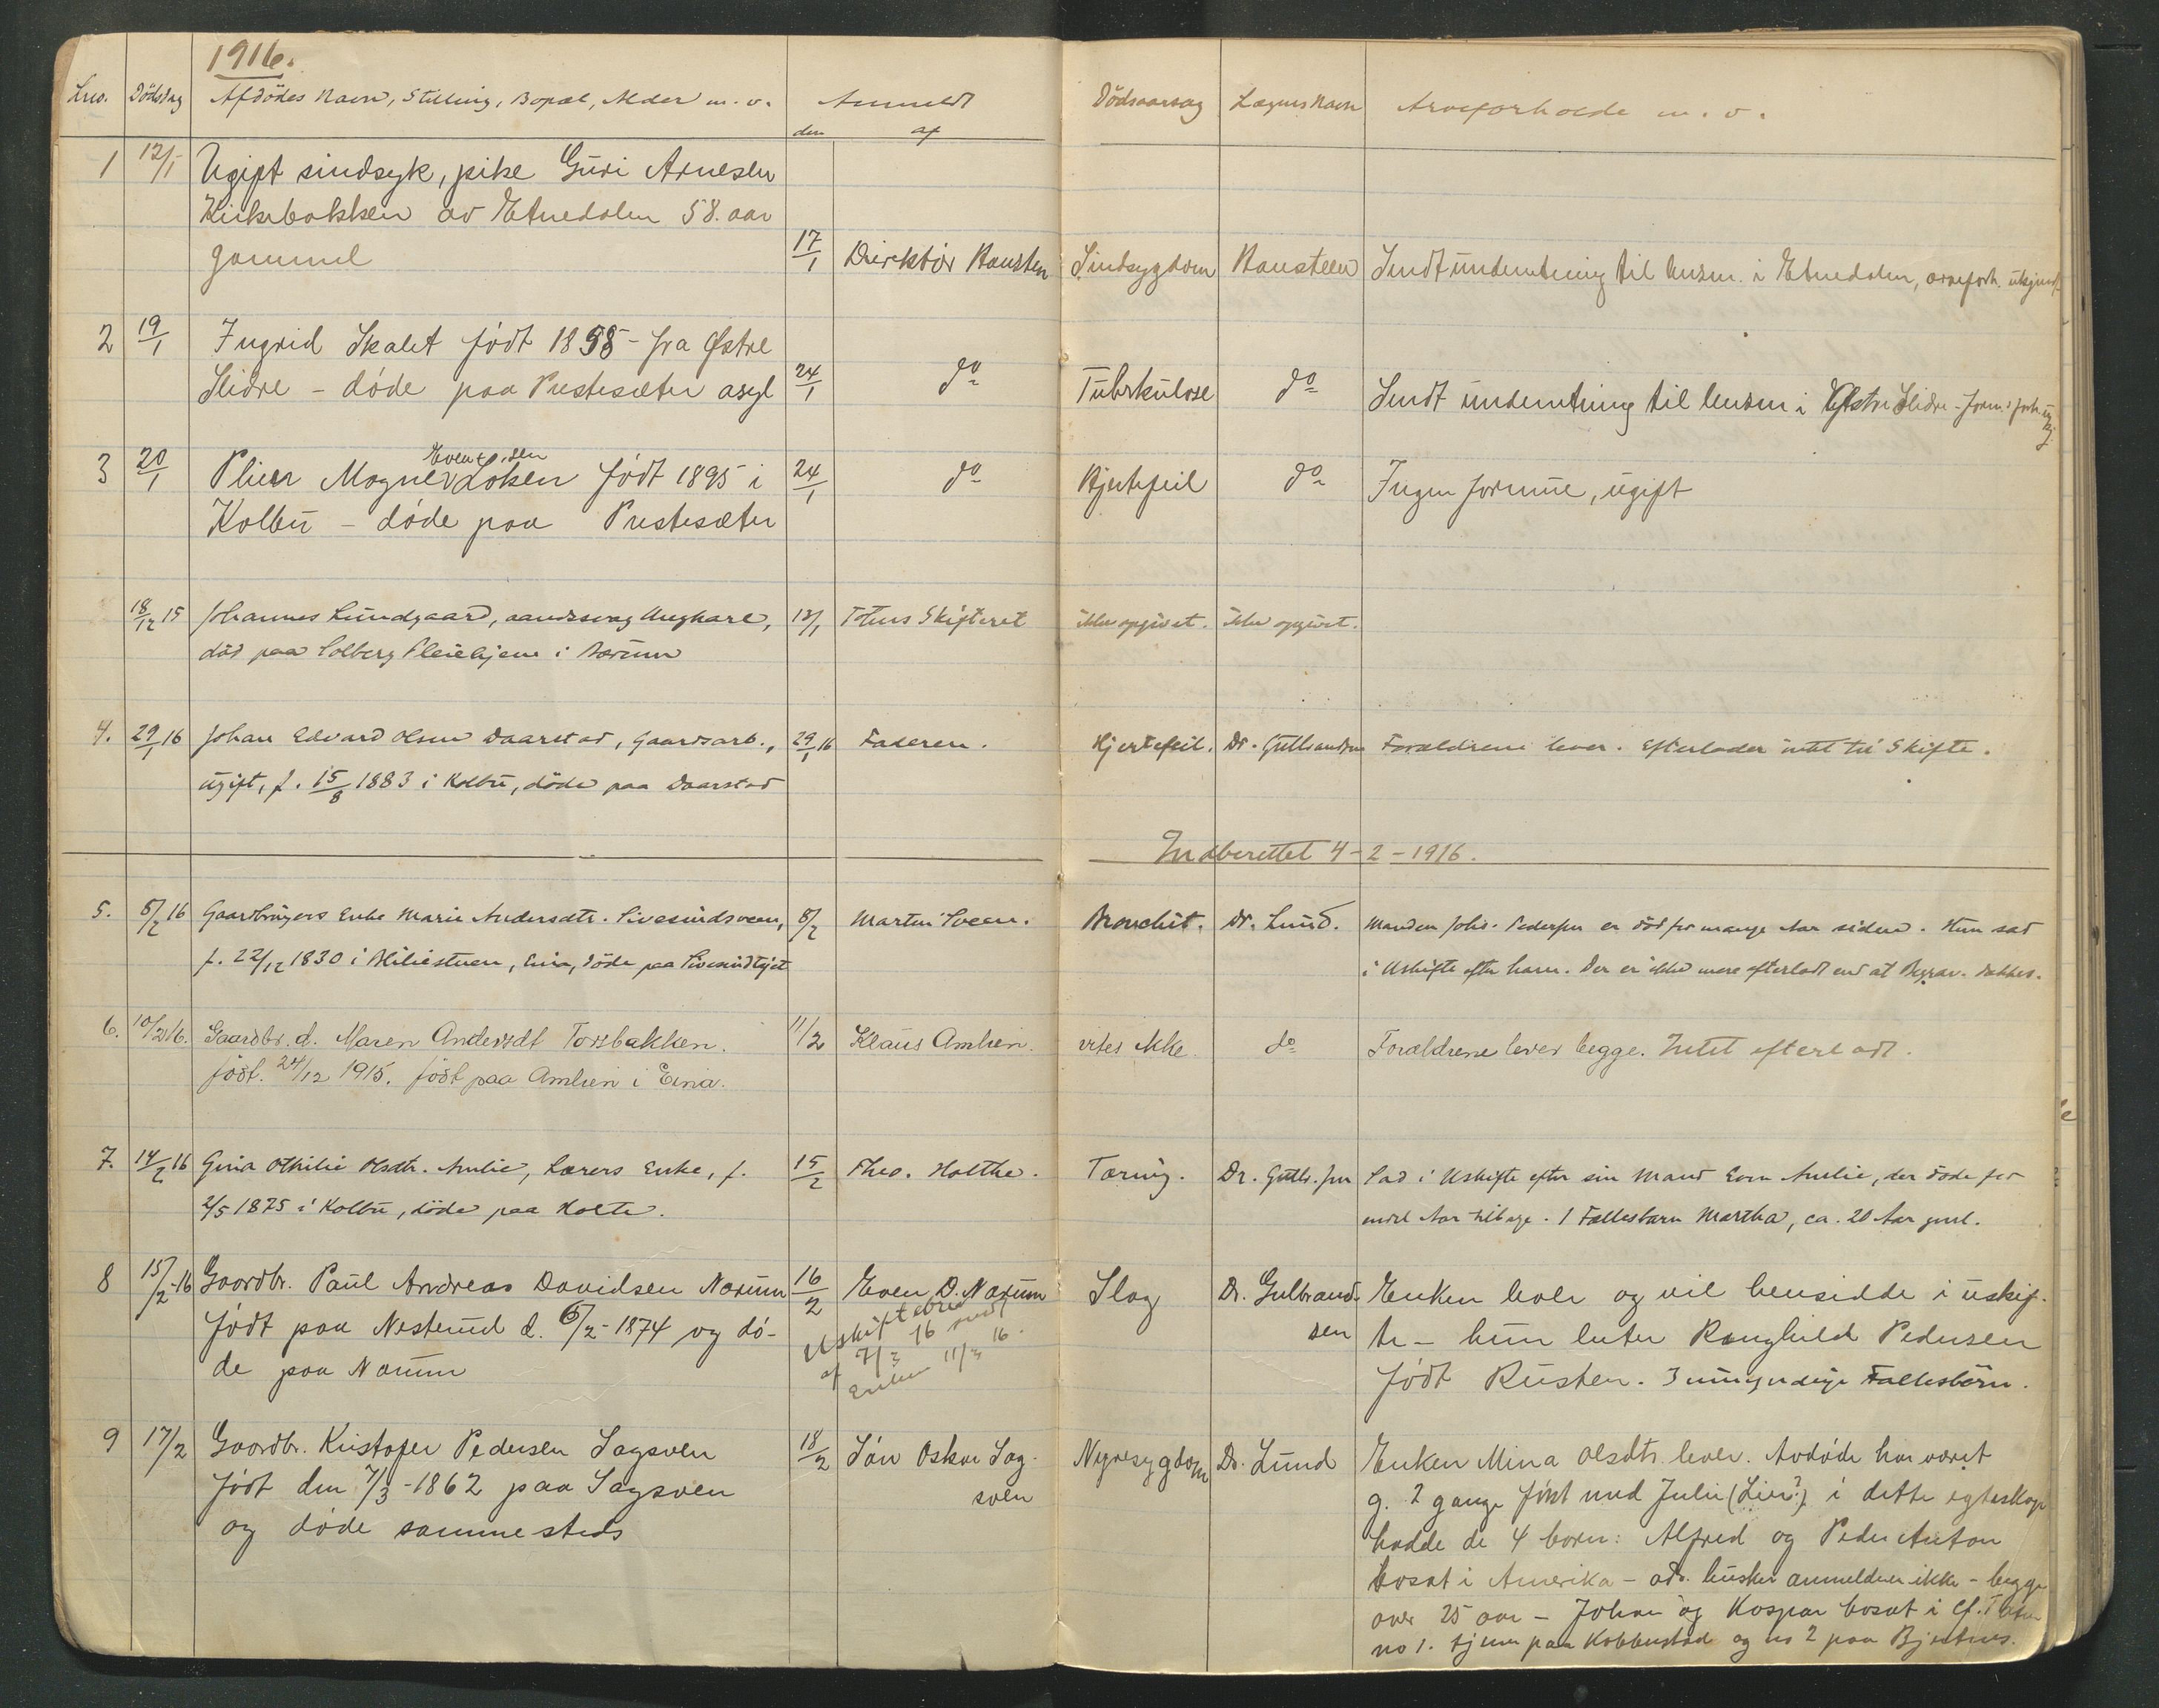 1916.
Lno. Dödsdag Afdödes Navn, Stilling, Bopæl, Alder m. v. Anmeldt
den af
Dödsaarsag Lægens Navn Arveforholde m. v.
1 12/1 Ugift sindsyk, pike Guri Arneslen
Kirkebakken av Etnedalen 58. aar
gammel
17/1 Direktör Hansteen Sindsygdom Hansteen Sendt underretning til lensm. i Etnedalen, arveforh. ukjendt
2 19/1 Ingrid Skalet født 1898 - fra Østre
Slidre - døde paa Prestesæter asyl 24/1 do Tuberkulose do Sendt underretning til lensm i Østre Slidre -
Evensen
3 20/1 Pleier Magne Løken født 1895 i 24/1 do Hjertefeil do Ingen formue, ugift
Kolbu - døde paa Prestesæter
18/12 15 Johannes Lundgaard, aandssvag Ungkarl, 13/1 Totens Skifteret ikke opgivet. ikke opgivet.
död paa Solberg Pleiehjem i Bærum
4. 29/1 16 Johan Edvard Olsen Daarstad, Gaardsarb., 29/1 16 Faderen. Hjertefeil. Dr. Gulbrandsen Forældrene lever. Efterlader intet til Skifte.
ugift, f. 15/8 1883 i Kolbu, döde paa Daarstad
Indberettet 4-2-1916.
5. 5/2 16 Gaardbrugers Enke Marie Andersdtr. Sivesindsveen, 8/2 Martin Sveen. Bronchit. Dr. Lund. Manden Johs. Pedersen er död for mange Aar siden. Hun sad
f. 22/12 1830 i Hiliestuen, Eina, döde paa Sivesindtejet
i Uskifte efter ham. Der er ikke mere efterladt end at Begrav. dækkes.
6. 10/2 16. Gaardbr. d. Maren Andersdt Torsbakken. 11/2 Klaus Amlien. vites ikke. do Forældrene lever begge. Intet efterladt.
født. 24/12 1915. født paa Amlien i Eina.
7. 14/2 16 Gina Othilie Olsdtr. Amlie, Lærers Enke, f. 15/2 Theo. Holthe. Tæring. Dr. Gulb.sen Sad i Uskifte efter sin Mand Even Amlie, der döde for
2/5 1875 i Kolbu, döde paa Holte.
endel Aar tilbage. 1 Fællesbarn Martha, ca. 20 Aar gml.
8 15/2-16 Gaardbr. Paul Andreas Davidsen Narum 16/2 Even D. Narum Slag Dr. Gulbrandsen Enken lever og vil hensidde i uskif-
født paa Nesterud d. 6/2-1874 og dø-
te - hun heter Ranghild Pedersen
de paa Narum
født Rusten. 3 umyndige Fællesbörn.
Uskiftebrev
af 7/3 16 sendt
Enken 11/3 16.
9 17/2 Gaardbr. Kristofer Pedersen Sagsveen 18/2 Søn Oskar Sag-
sveen
Nyresygdom Dr. Lund Enken Mina Olsdtr. lever. Avdøde har været
født den 7/3-1862 paa Sagsveen
og døde sammesteds
g. 2 gange først med Julie (Lier?) i dette egteskap
hadde de 4 børn: Alfred og Peder Anton
bosat i Amerika - adr. husker anmelderen ikke - begge
over 25 aar - Johan og Kaspar bosat i Ø. Toten
no 1. tjener paa Kobbenstad og no 2 paa Bjertnes.